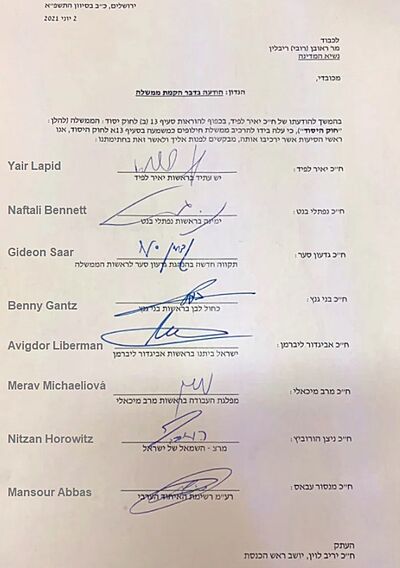 ירושלים, כ"ב בסיוון התשפ"א
2 יוני 2021
לכבוד
מר ראובן (רובי) ריבלין
נשיא המדינה
מכובדי,
הנדון: הודעה בדבר הקמת ממשלה
בהמשך להודעתו של ח"כ יאיר לפיד, בכפוף להוראות סעיף 13 (ב) לחוק יסוד: הממשלה (להלן:
"חוק היסוד"), כי עלה בידו להרכיב ממשלת חילופים כמשמעה בסעיף 13א לחוק היסוד, אנו
ראשי הסיעות אשר ירכיבו אותה, מבקשים לפנות אליך ולאשר זאת בחתימתנו:
Yair Lapid
ח"כ יאיר לפיד:
יש עתיד בראשות יאיר לפיד
Naftali Bennett
ח"כ נפתלי בנט:
ימינה בראשות נפתלי בנט
Gideon Saar
ח"כ גדעון סער:
תקווה חדשה בהנהגת גדעון סער לראשות הממשלה
Benny Gantz
ח"כ בני גנץ:
כחול לבן בראשות בני גנץ
Avigdor Liberman
ח"כ אביגדור ליברמן:
ישראל ביתנו בראשות אביגדור ליברמן
Merav Michaeliová
ח"כ מרב מיכאלי:
מפלגת העבודה בראשות מרב מיכאלי
Nitzan Horowitz
ח"כ ניצן הורוביץ:
מרצ - השמאל של ישראל
Mansour Abbas
ח"כ מנסור עבאס:
רע"מ רשימת האיחוד הערבי
העתק
ח"כ יריב לוין, יושב ראש הכנסת